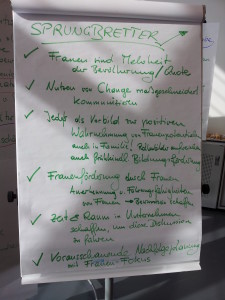 SPRUNGBRETTER
✓ Frauen sind Mehrheit
der Bevölkerung / Quote
✓ Nutzen von Change maßgeschneidert
kommunizieren
✓ Jede/r als Vorbild zur positiven
Wahrnehmung von
auch in Familie! Rollenbilder
auch
✓ Frauenförderung durch Frauen
Anerkennung v. Führungsfähigkeiten
von Frauen → Bewusstsein schaffen
✓ Zeit & Raum in Unternehmen
schaffen, um diese Diskussion
zu führen
✓ Vorausschauende Nachfolgeplanung
mit Frauen Fokus